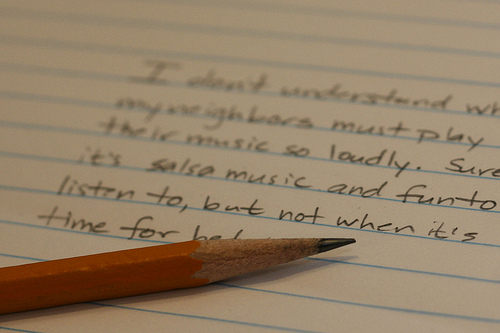 I don't understand wh
my neighbors must play
their music so loudly. Sure
it's salsa music and fun to
listen to, but not when it's
time for bed